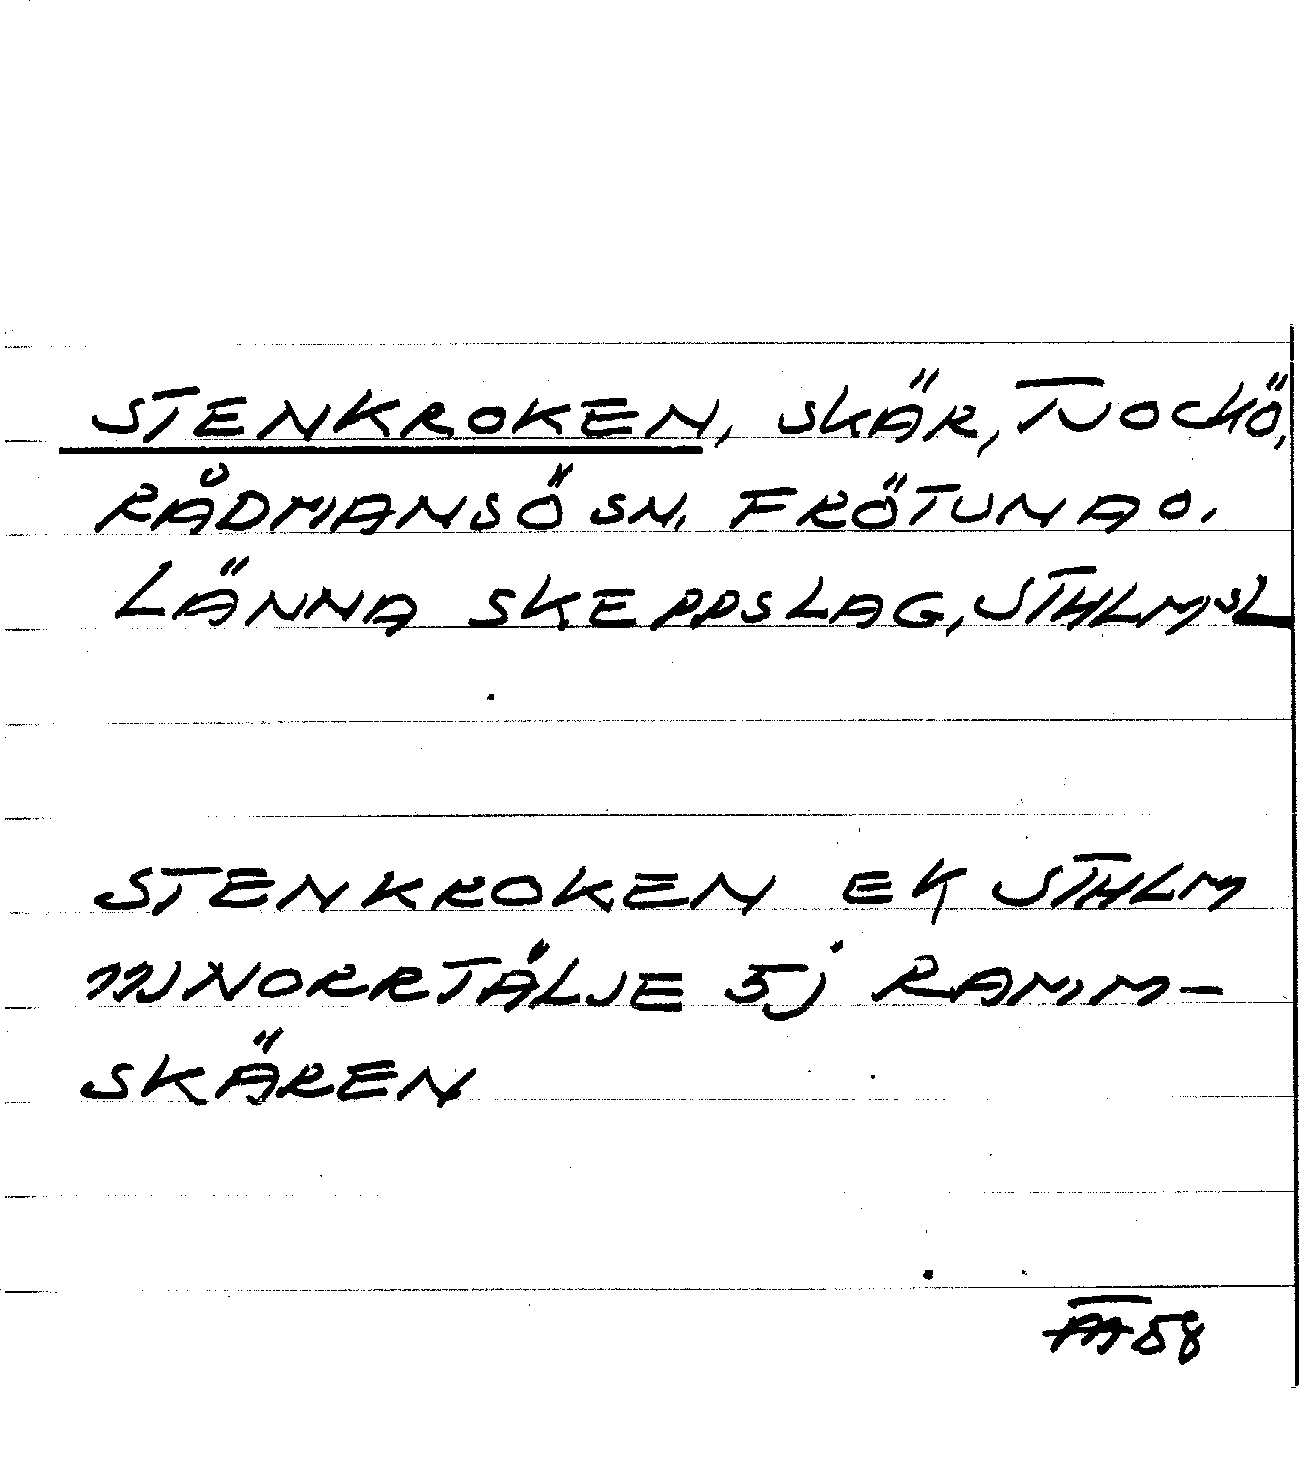 STENKROKEN, SKÄR, TJOCKÖ,
RÅDMANSÖ SN. FRÖTUNA O.
LÄNNA SKEPPSLAG, STHLMSL
STENKROKEN EK STHLM
NORRTÄLJE 5j RAMM-
SKÄREN
58